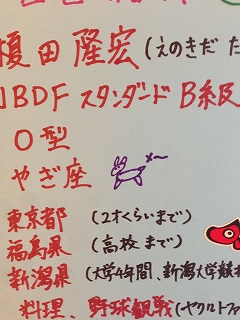 榎田 隆宏 (えのきだ た
JBDF スタンダード B級
O型
やぎ座 メ〜
東京都 (2才くらいまで)
福島県 (高校まで)
新潟県 (大学4年間、新潟大学競技
料理、野球観戦(ヤクルトファ